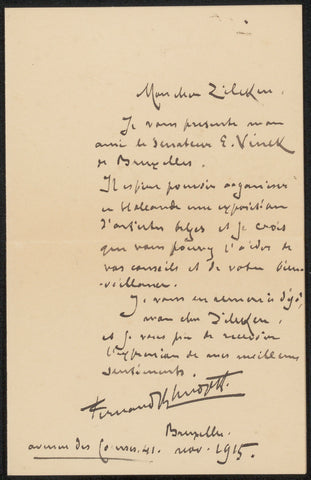 Mon cher Zilcken,
Je vous présente mon
ami le Senateur E. Vinck
de Bruxelles.
Il espère pouvoir organiser
en Hollande une exposition
d'artistes belges et je crois
que vous pouvez l'aider de
vos conseils et de votre bien-
-veillance.
Je vous en remercie déjà,
mon cher Zilcken,
et je vous prie de recevoir
l'expression de mes meilleurs
sentiments.
Fernand Khnopff.
Bruxelles.
avenue des Courses. 41. nov. 1915.